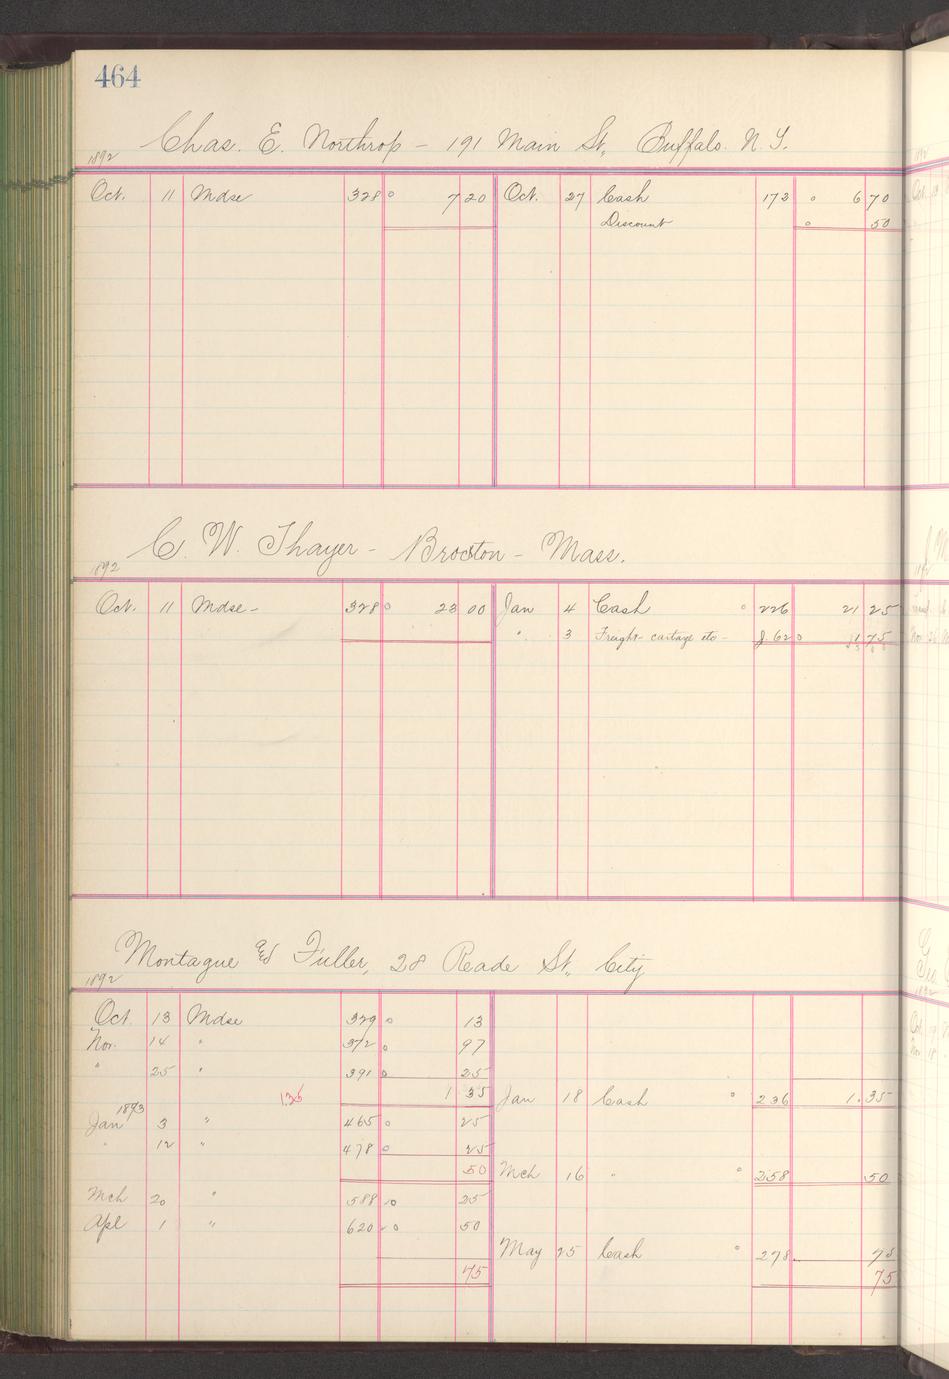 464
Chas. E. Northrop - 191 Main St, Buffalo. N. Y.
1892
Oct. 11 Mdse 328 o 7 20 Oct. 27 Cash 173 o 6 70
Discount o 50
C. W. Thayer - Brocton - Mass.
1892
Oct. 11 Mdse - 328 o 23 00 Jan 4 Cash o 226 21 25
" 3 Freight - cartage etc - J. 62 o 1 75
Montague and Fuller, 28 Reade St, City
1892
Oct. 13 Mdse 329 o 13
Nov. 14 " 372 o 97
" 25 " 391 o 25
135 1 35 Jan 18 Cash o 236 1.35
1893
Jan 3 " 465 o 25
" 12 " 478 o 25
50 Mch 16 " o 258 50
Mch 20 " 588 o 25
Apl 1 " 620 o 50
May 25 Cash o 278 75
75 75